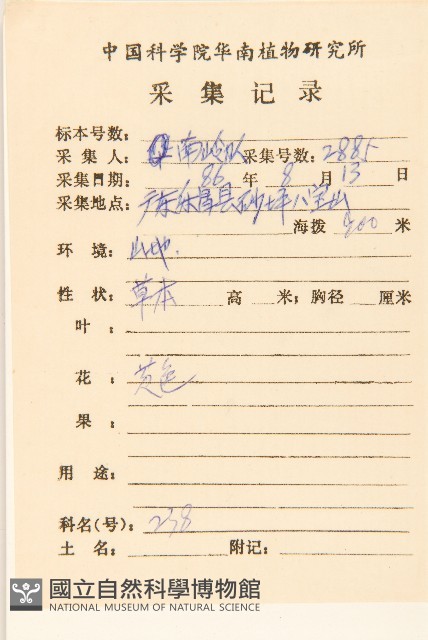 中国科学院华南植物研究所
采集记录
标本号数:
采集人: 南岭队 采集号数: 2885
采集日期: 86 年 8 月 13 日
采集地点: 广东乐昌县 坪八宝山
海拨 900 米
环境: 山地.
性状: 草本 高 米; 胸径 厘米
叶:
花: 黄色
果:
用途:
科名(号): 238
土名: 附记:
國立自然科學博物館
NATIONAL MUSEUM OF NATURAL SCIENCE